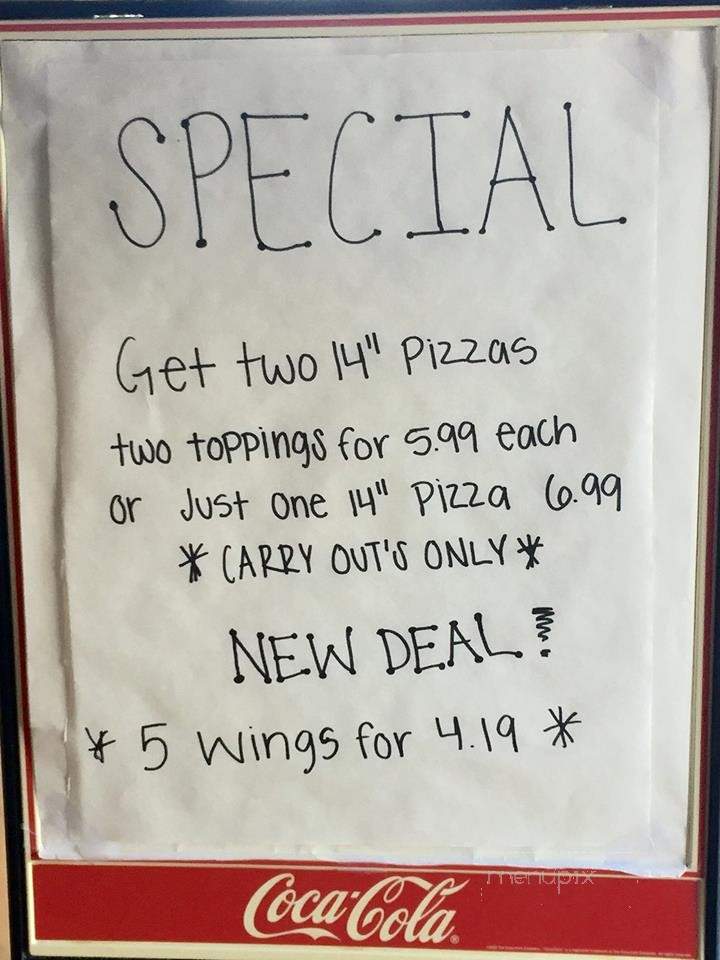 SPECIAL
Get two 14" Pizzas
two toppings for 5.99 each
or Just one 14" Pizza 6.99
* CARRY OUT'S ONLY *
NEW DEAL!
* 5 wings for 4.19 *
menupix
Coca-Cola